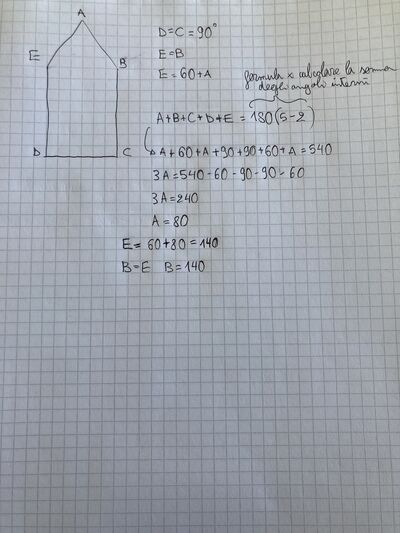 A
E
B
D
C
D=C=90°
E=B
E=60+A
formula x calcolare la somma
degli angoli interni
A+B+C+D+E=180(5-2)
A+60+A+90+90+60+A=540
3A=540-60-90-90-60
3A=240
A=80
E=60+80=140
B=E B=140